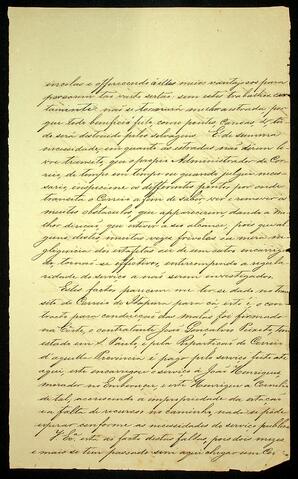 incolas e offerecendo á elles meios vantajosos para
povoarem tão vasto sertão, sem estes trabalhos cer-
tamente não se tornará uma estrada, por
que todo beneficio feito, como pontes, canôas &c. tem
de ser distruido pelos selvagens. É de summa
necessidade, em quanto as estradas não derem li-
vre transito, que o proprio Administrador do Cor-
reio, de tempo em tempo ou quando julgue neces-
sario, inspecione os differentes pontos por onde
transita o Correio a fim de saber ver e remover os
muitos obstaculos, que apparecerem, dando a me-
lhor direcção, que obtiver a seu alcance, pois que al-
guns destes muitas vezes filhos da mera ne-
gligencia dos estafetas ou de um outro encarrega-
do, tornão-se effectivos, interrompendo a regula-
ridade do serviço a não serem investigados.
Estes factos parecem-me ter-se dado no tran-
sito do Correio de Itapura para cá, isto é, o con-
tracto para conducção das malas foi firmado
na Côrte, o contratante José Gonçalves Peixoto,
estada em S. Paulo, e pela Repartição do Correio
d'aquella Provincia é pago pelo serviço feito até
aqui, este encarregou o serviço a José Henriques
morador no
de tal, accrescendo a impropriedade da estação
e a falta de recursos no caminho, nada se póde
esperar conforme as necessidades do serviço publico.
V. Exª. está ao facto destas faltas, pois dois mezes
e mais se tem passado sem aqui chegar um Cor-